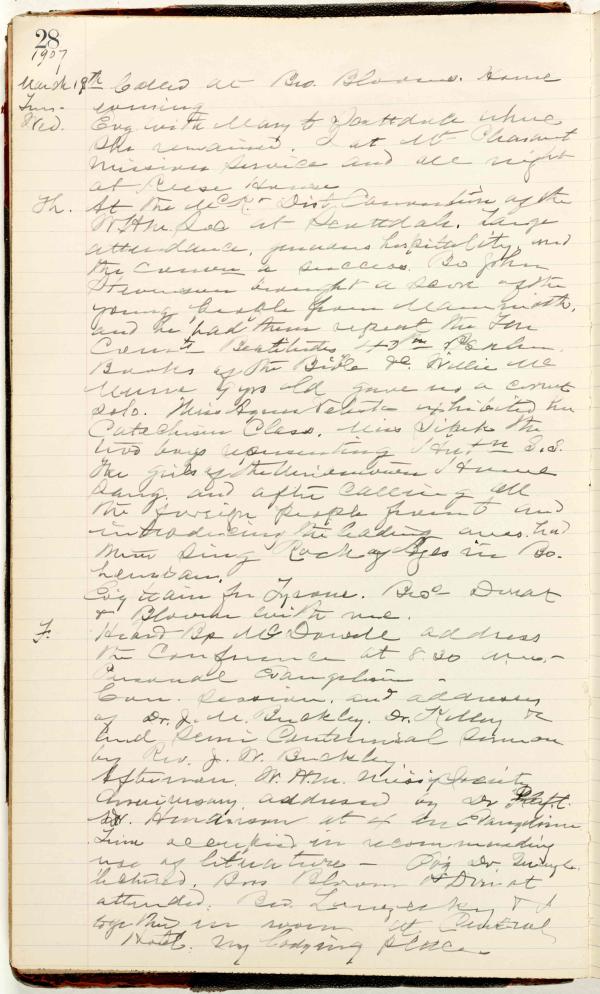 28
1907
March 19th Called at Bro. Blooms. Home
Tues- evening
Wed. Evg with Mary to Scottdale where
she remained. I at Mt Pleasant
Mission Service and all night
at Reese House
Th. At the McK. Dist. Convention of the
W.H.M. Soc at Scottdale. Large
attendance, generous hospitality, and
the conven a success. Bro John
brought a score of the
young people from Mammoth,
and he had them repeat the Ten
Comts Beatitudes, Psalm
Books of the Bible &c. Willie Mc
9 yrs old gave us a cornet
solo. Miss exhibited her
Catechism Class. Miss the
two boys representing S.S.
The girls of the Uniontown Home
sang, and after calling all
the foreign people front and
introducing the leading ones had
them sing Rock of Ages in Bo-
hemian.
Evg train for Tyrone. Bros
& Bloom with me.
F. Heard Bp McDowell address
the Conference at 8.30 a.m.-
Personal Evangelism -
Con. Session, and addresses
of Dr. J. M. Buckley. Dr. Kelley &
and Semi Centennial Sermon
by Rev. J. W. Buckley
Afternoon. W.H.M. Society
Anniversary, address by Dr
Henderson at 4 on Evangelism
Time occupied in recommending
use of literature - Evg Dr
lectured. Bros Bloom &
attended. Bro. & I
together in room at Central
Hotel. my lodging place